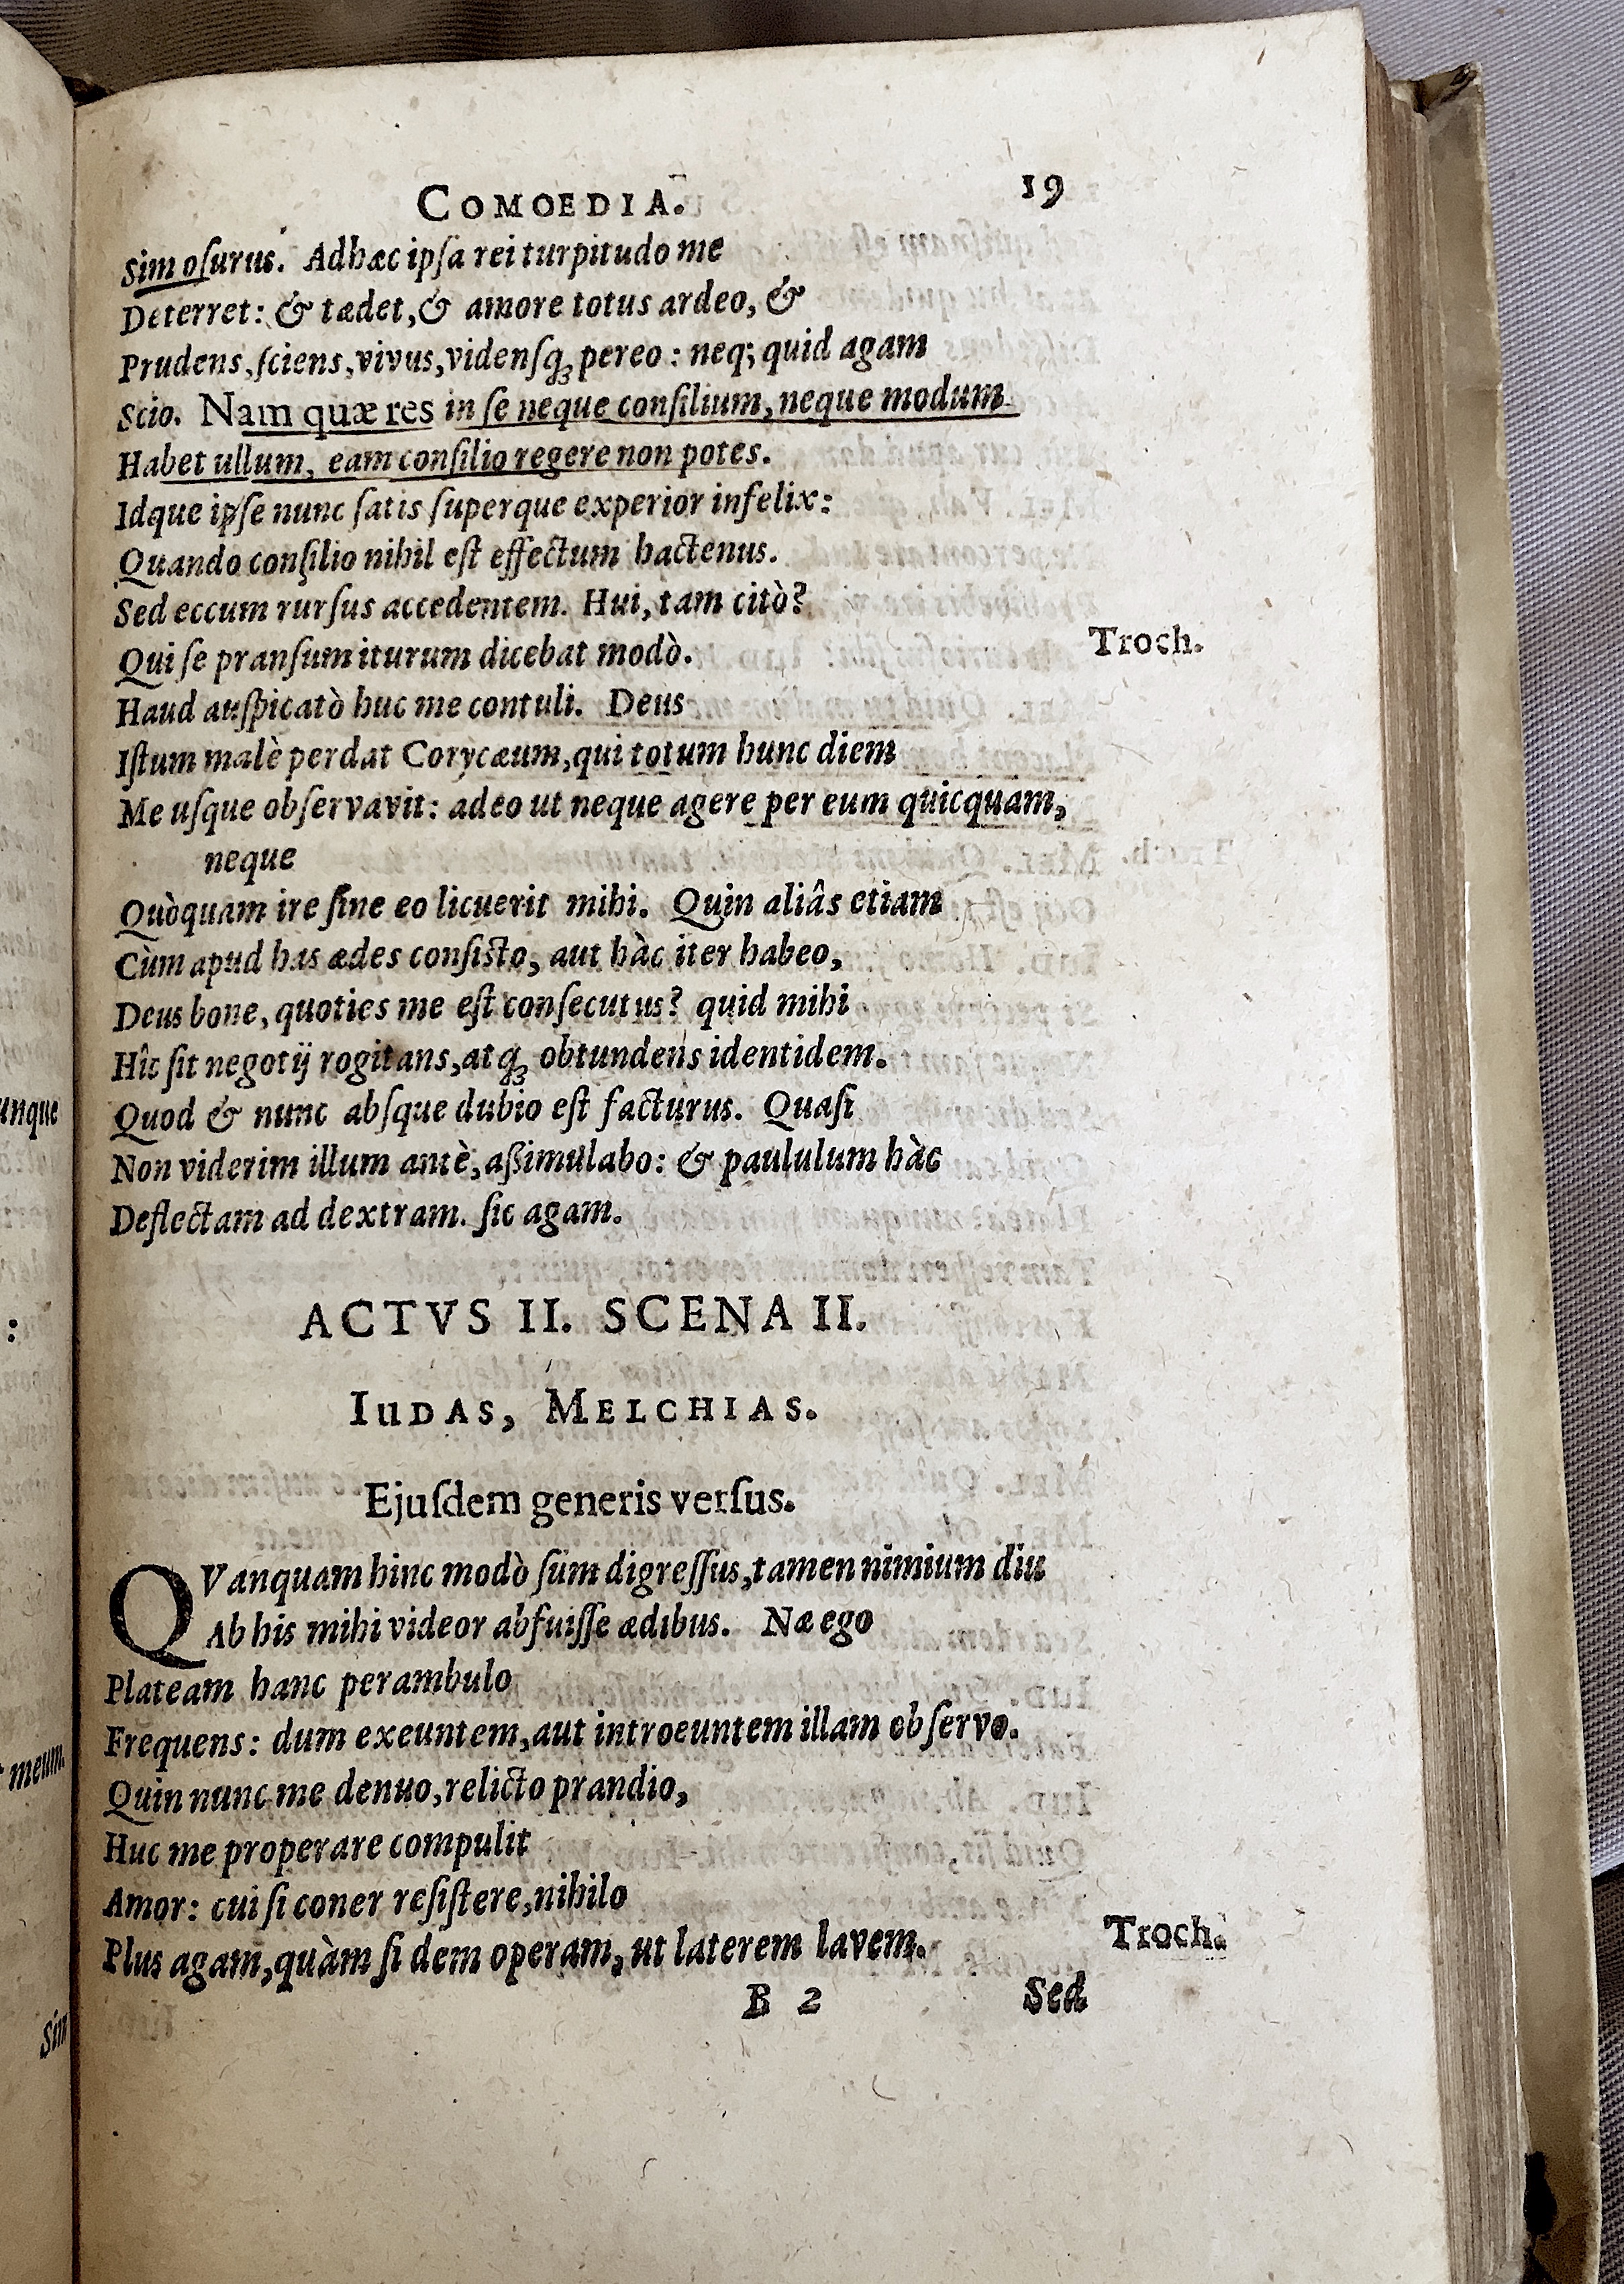 COMOEDIA. 19
sim oſurus. Adhæc ipſa rei turpitudo me
Deterret: & tædet, & amore totus ardeo, &
Prudens, ſciens, vivus, videnſq́; pereo: neq; quid agam
Scio. Nam quæ res in ſe neque conſilium, neque modum
Habet ullum, eam conſilio regere non potes.
Idque ipſe nunc ſatis ſuperque experior infelix:
Quando conſilio nihil eſt effectum hactenus.
Sed eccum rurſus accedentem. Hui, tam citò?
Qui ſe pranſum iturum dicebat modò. Troch.
Haud auſpicatò huc me contuli. Deus
Iſtum malè perdat Corycæum, qui totum hunc diem
Me uſque obſervavit: adeo ut neque agere per eum quicquam,
neque
Quòquam ire ſine eo licuerit mihi. Quin aliâs etiam
Cùm apud has ædes conſisto, aut hàc iter habeo,
Deus bone, quoties me eſt conſecutus? quid mihi
Hîc ſit negotij rogitans, atq; obtundens identidem.
Quod & nunc abſque dubio eſt facturus. Quaſi
Non viderim illum antè, aßimulabo: & paululum hàc
Deflectam ad dextram. ſic agam.
ACTVS II. SCENA II.
IUDAS, MELCHIAS.
Ejuſdem generis verſus.
QVanquam hinc modò ſum digreſſus, tamen nimium diu
Ab his mihi videor abfuiſſe ædibus. Næ ego
Plateam hanc perambulo
Frequens: dum exeuntem, aut introeuntem illam obſervo.
Quin nunc me denuo, relicto prandio,
Huc me properare compulit
Amor: cui ſi coner reſiſtere, nihilo
Plus agam, quàm ſi dem operam, ut laterem lavem. Troch.
B 2 Sed
unque
:
meum.
Sim